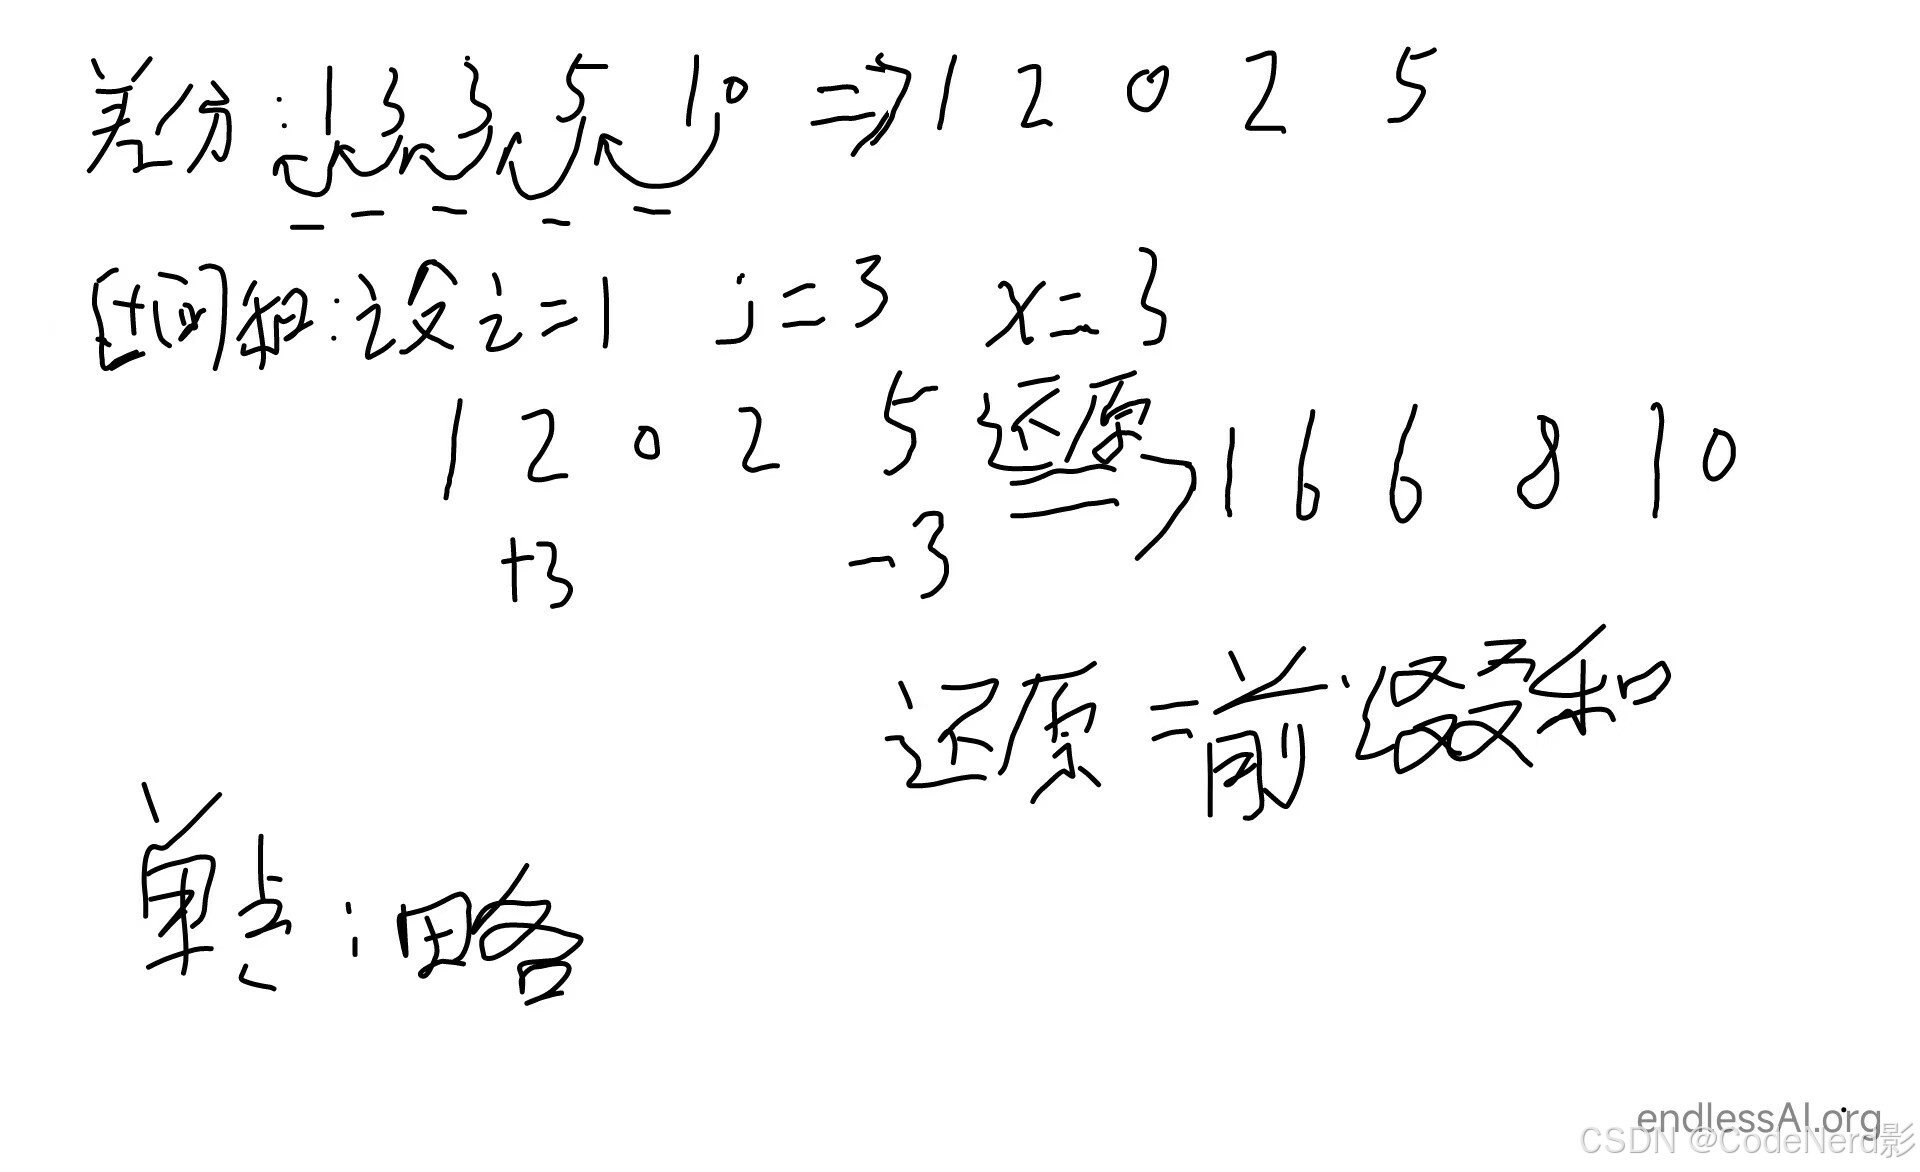 差分:1 3 3 5 10 => 1 2 0 2 5
区间和:设i=1 j=3 x=3
1 2 0 2 5 还原 => 1 6 6 8 10
+3 -3
还原=前缀和
单点:略
endlessAI.org
CSDN @CodeNerd影